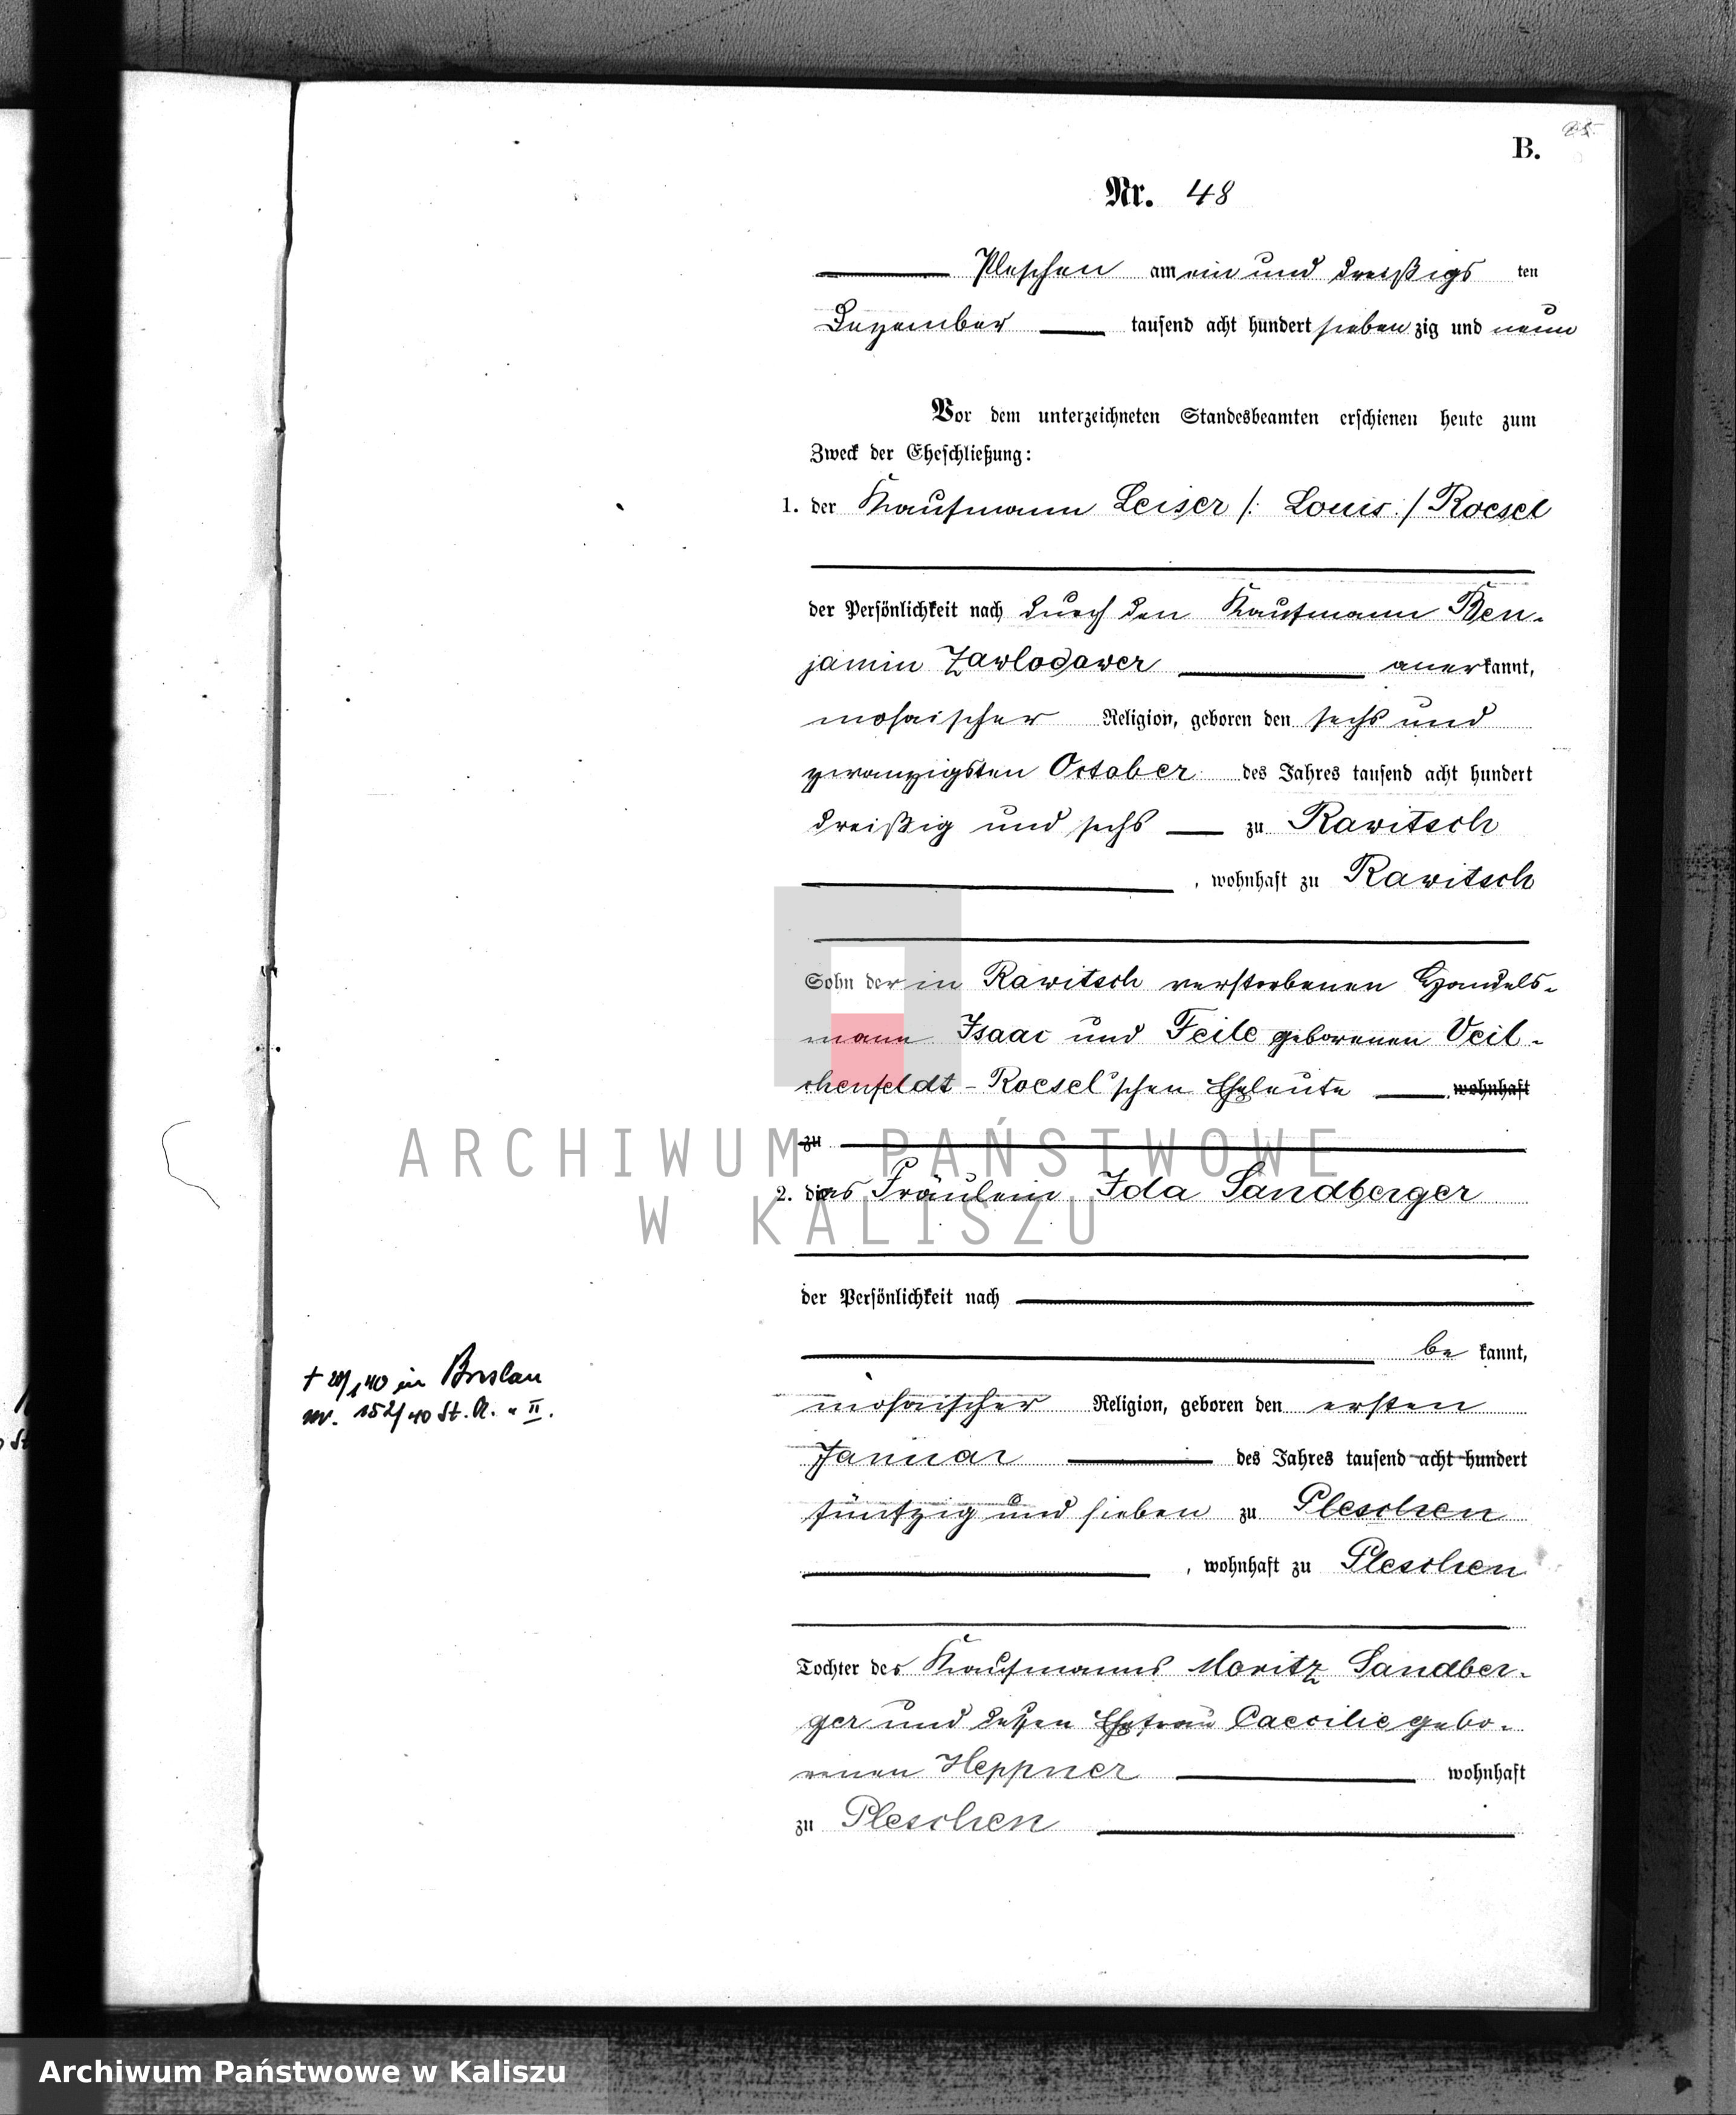 B.
Nr. 48
Pleschen am ein und dreißigs ten
Dezember tausend acht hundert sieben zig und neun
Vor dem unterzeichneten Standesbeamten erschienen heute zum
Zweck der Eheschließung:
1. der Kaufmann Leiser /: Louis :/ Roesel
der Persönlichkeit nach durch den Kaufmann Ben-
jamin Zawlodower anerkannt,
mosaischer Religion, geboren den sechs und
zwanzigsten October des Jahres tausend acht hundert
dreißig und sechs zu Rawitsch
, wohnhaft zu Rawitsch
Sohn der in Rawitsch verstorbenen Handels-
mann Isaac und Feile geborenen Veil-
chenfeldt - Roesel'schen Eheleute wohnhaft
zu
ARCHIWUM PAŃSTWOWE
W KALISZU
2. das Fräulein Ida Sandberger
der Persönlichkeit nach
be kannt,
mosaischer Religion, geboren den ersten
Januar des Jahres tausend acht hundert
fünfzig und sieben zu Pleschen
, wohnhaft zu Pleschen
Tochter des Kaufmanns Moritz Sandber-
ger und deßen Ehefrau Caecilie gebo-
renen Heppner wohnhaft
zu Pleschen
in Breslau
nr. 152/40 St. A. II.
Archiwum Państwowe w Kaliszu